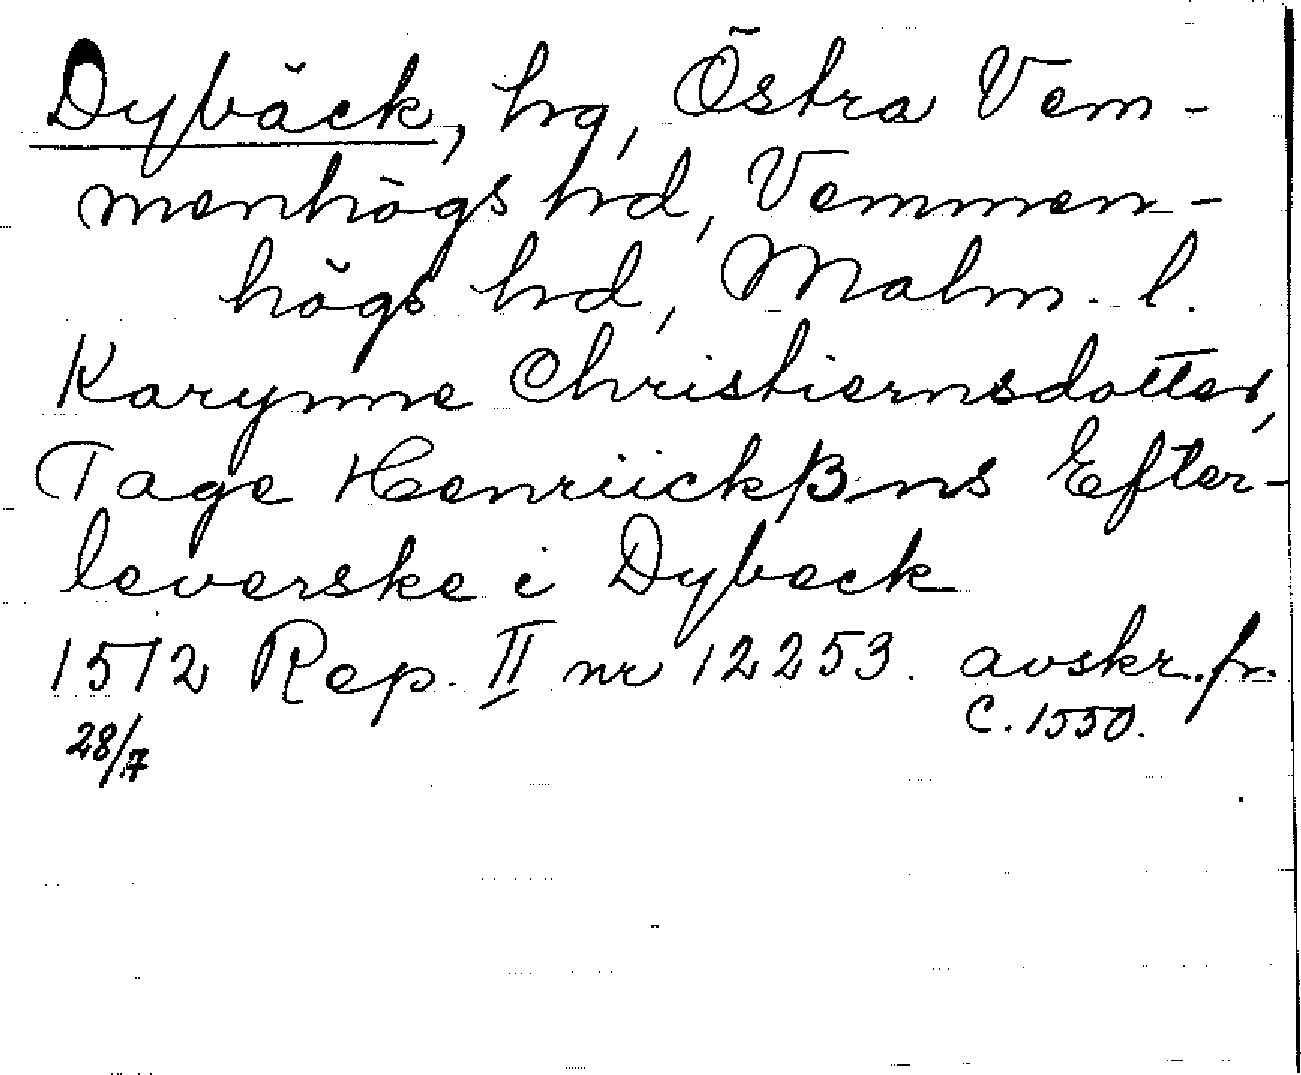 Dybäck, hg, Östra Vem-
menhögs hd, Vemmen-
högs hd, Malm. l.
Karynne Christiernsdotter,
Tage Henriickßns Efter-
leverske i Dybeck
1512 Rep. II nr 12253. avskr. fr.
28/7 c. 1550.